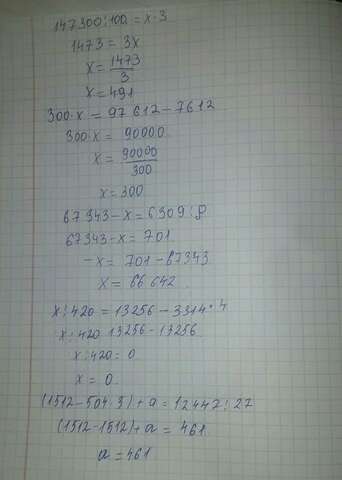 147300:100 = x·3
1473 = 3x
x = 1473/3
x = 491
300·x = 97612-7612
300·x = 90000
x = 90000/300
x = 300
67343-x = 6309:9
67343-x = 701
-x = 701-67343
x = 66642
x:420 = 13256-3314·4
x:420 13256-13256
x:420 = 0
x = 0
(1512-504·3)+a = 12447:27
(1512-1512)+a = 461
a = 461